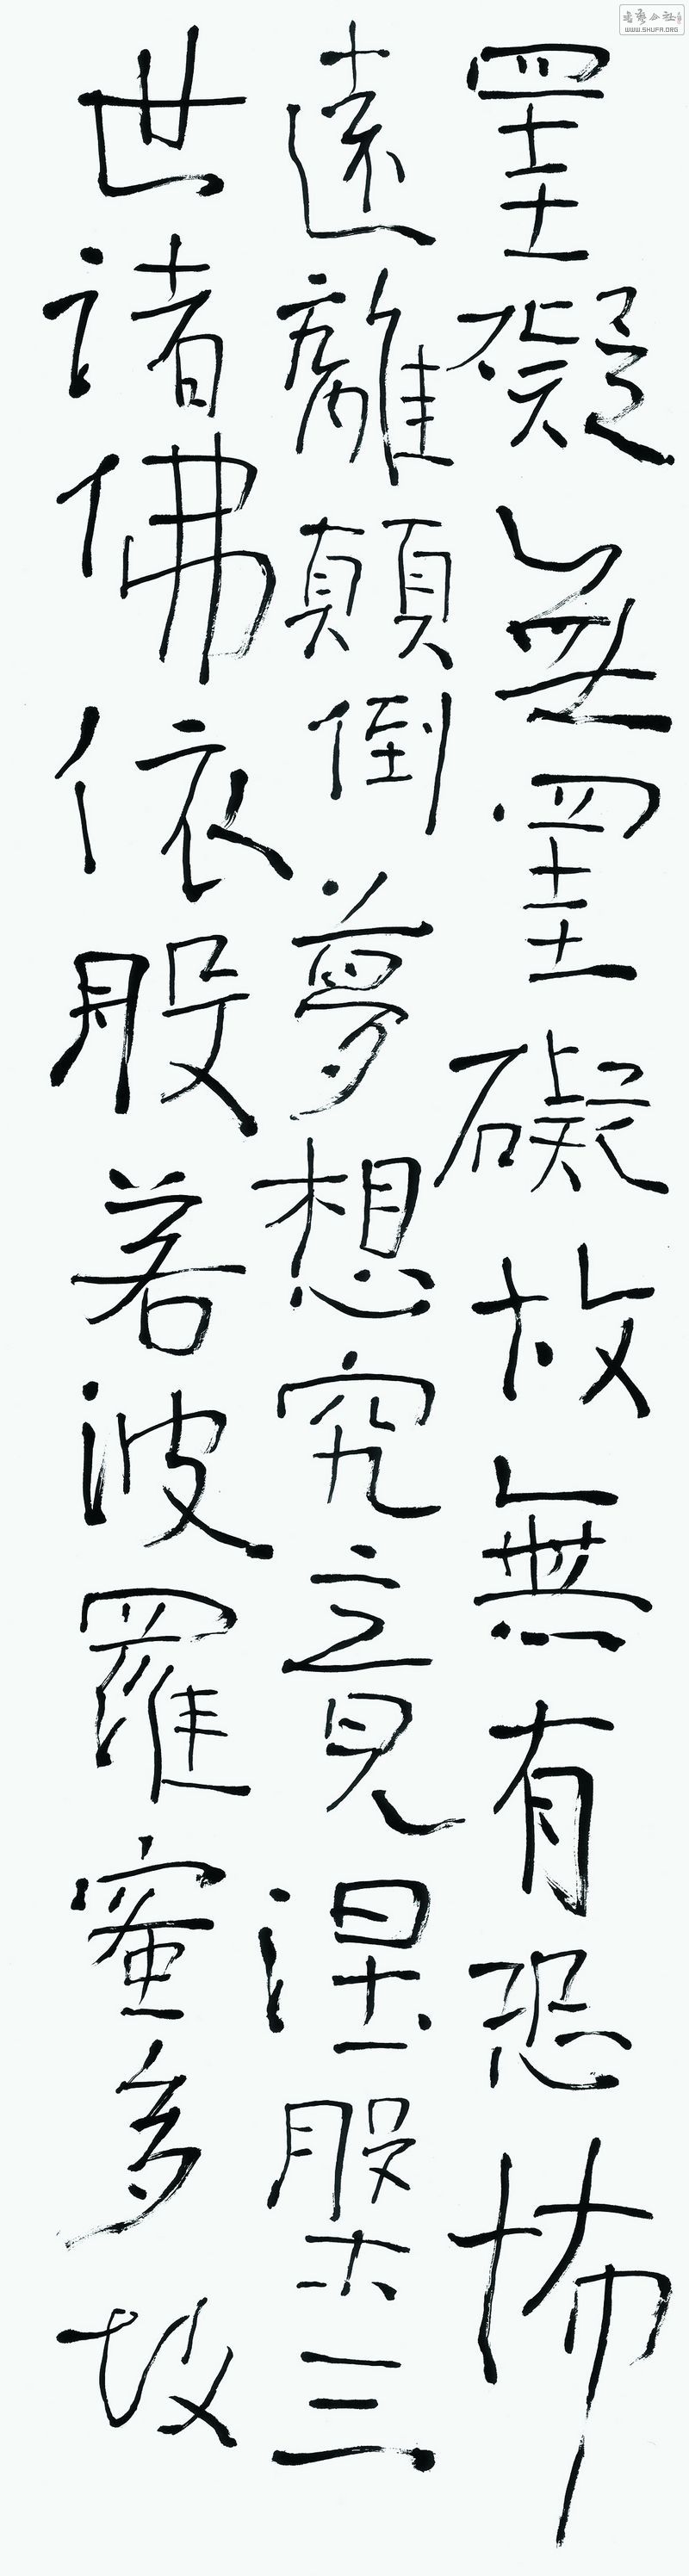 罣礙無罣礙故無有恐怖
遠離顛倒夢想究竟涅槃三
世諸佛依般若波羅蜜多故
WWW.SHUFA.ORG